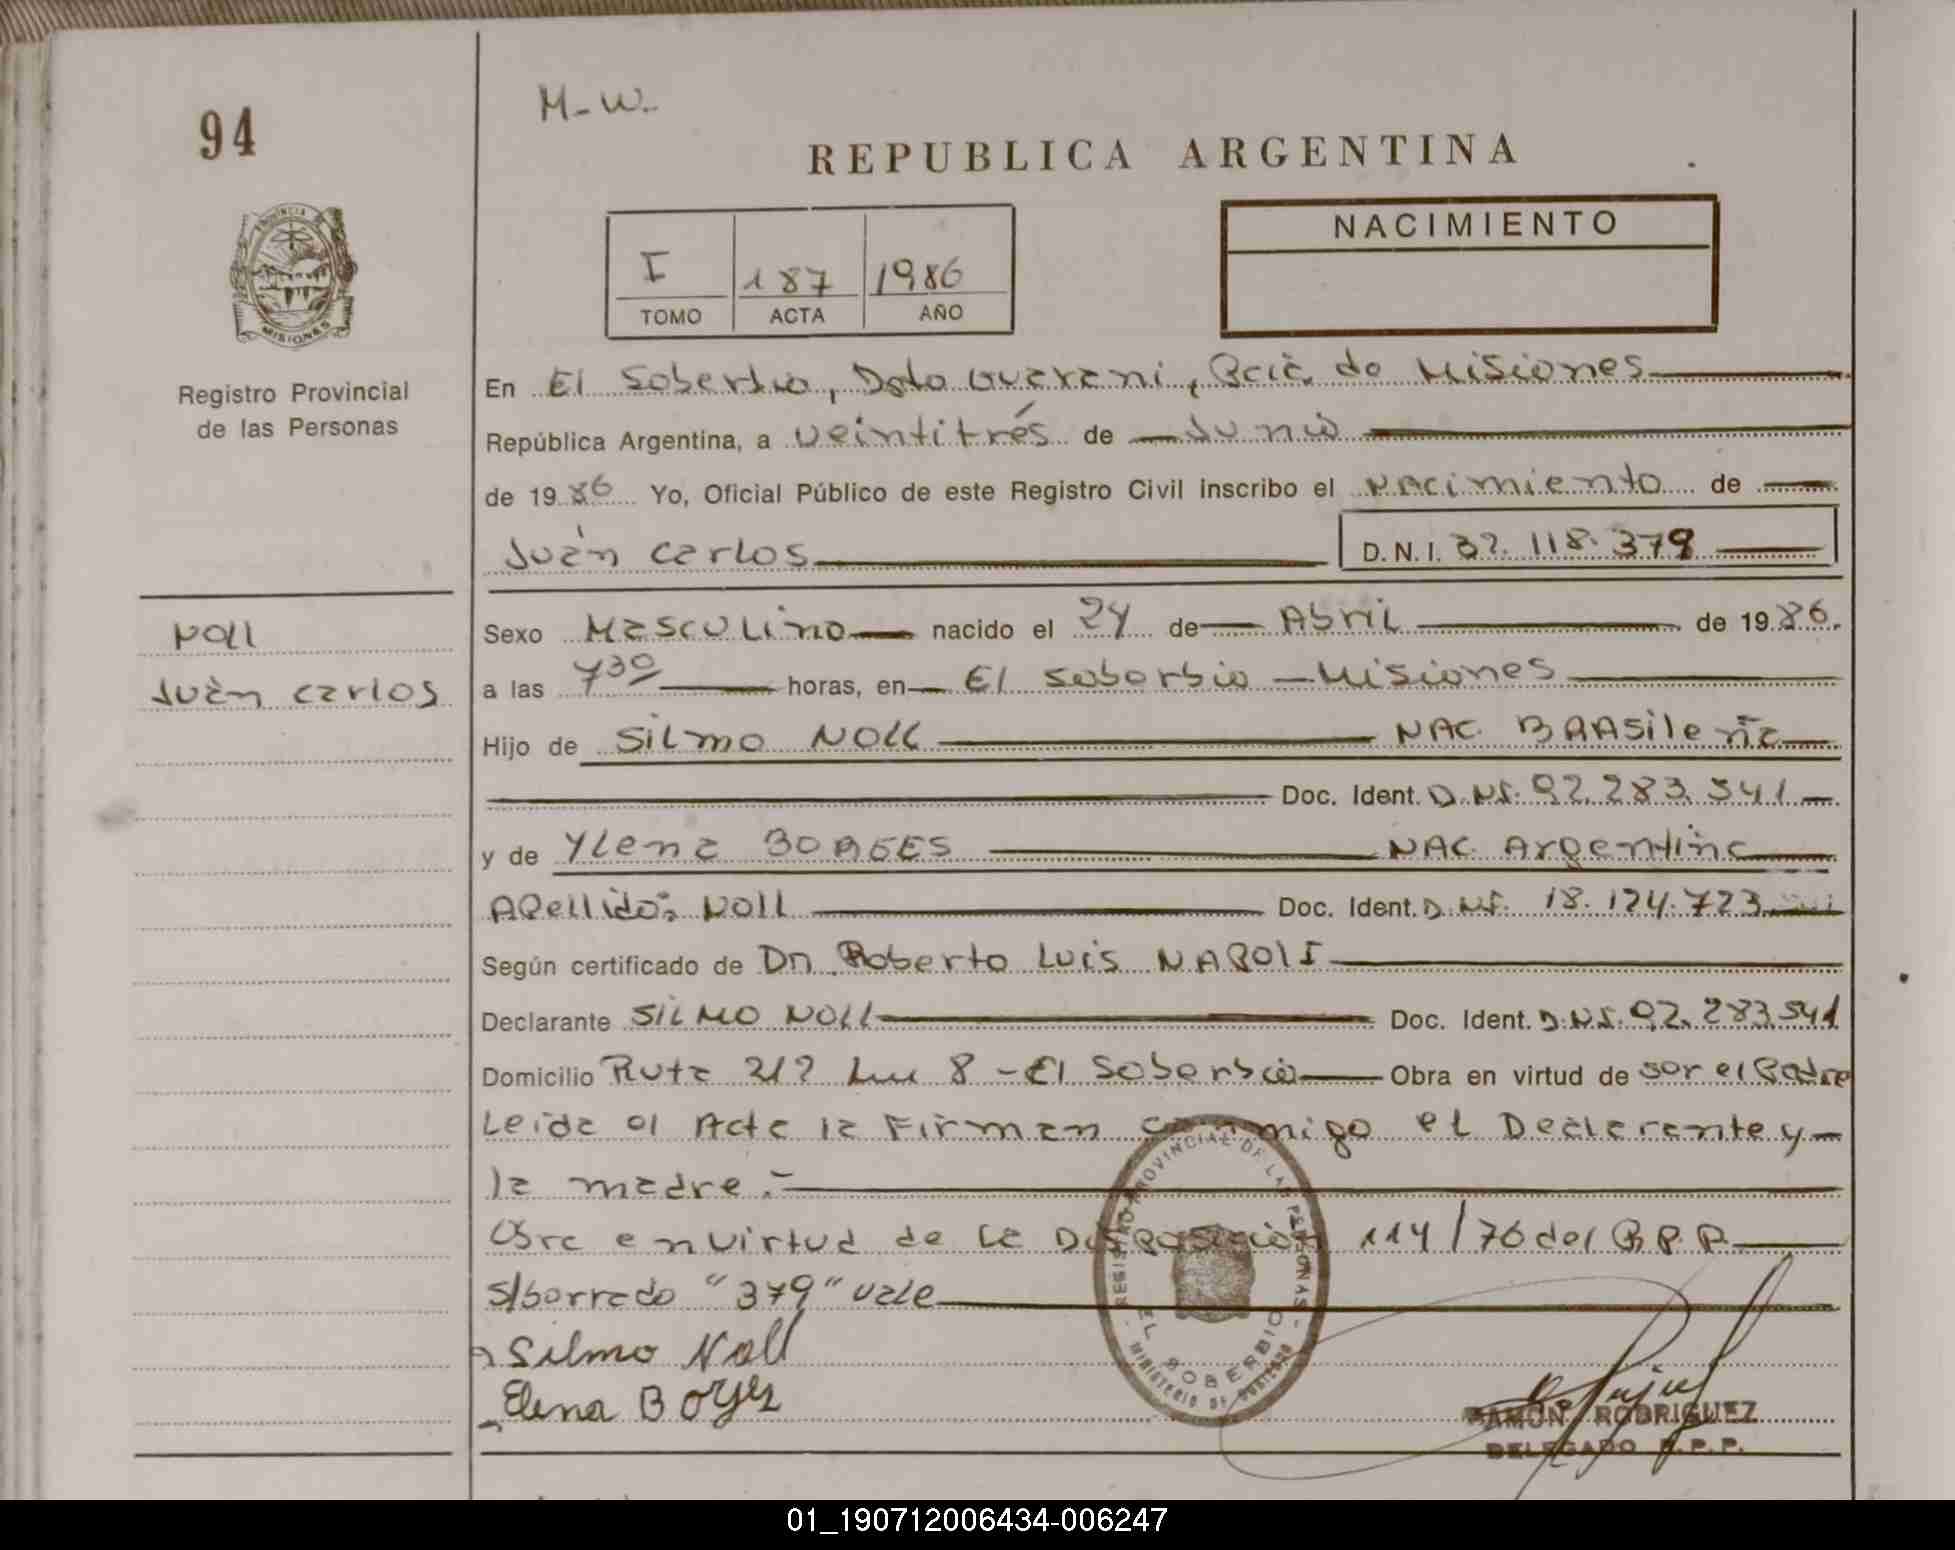 94
M-W.
REPUBLICA ARGENTINA
PROVINCIA DE
MISIONES
NACIMIENTO
I 187 1986
TOMO ACTA AÑO
Registro Provincial
de las Personas
En El Soberbio, Dpto Guarani, Pcia de Misiones
República Argentina, a veintitrés de Junio
de 1986 Yo, Oficial Público de este Registro Civil inscribo el Nacimiento de
Juan Carlos D.N.I. 32.118.379
NOLL
Juan Carlos
Sexo Masculino nacido el 24 de Abril de 1986.
a las 7 30 horas, en El Soberbio - Misiones
Hijo de Silmo NOLL NAC. BRASileña
Doc. Ident. D.N.I. 92.283.541
y de Ylena BORGES NAC. Argentina
Apellido: NOLL Doc. Ident. D.N.I. 18.124.723
Según certificado de Dn. Roberto Luis NAPOLI
Declarante SILMO NOLL Doc. Ident. D.N.I. 92.283.541
Domicilio Ruta 212 km 8 - El Soberbio Obra en virtud de ser el Padre
Leida el Acta la Firman conmigo el Declarante y
la madre.-
Obra en virtud de la Disposición 114/76 del R.P.P.
s/borrado "379" vale
REGISTRO PROVINCIAL DE LAS PERSONAS
EL SOBERBIO
MINISTERIO DE GOBIERNO
Silmo Noll
Elena Borges
RAMON RODRIGUEZ
DELEGADO R.P.P.
01_190712006434-006247